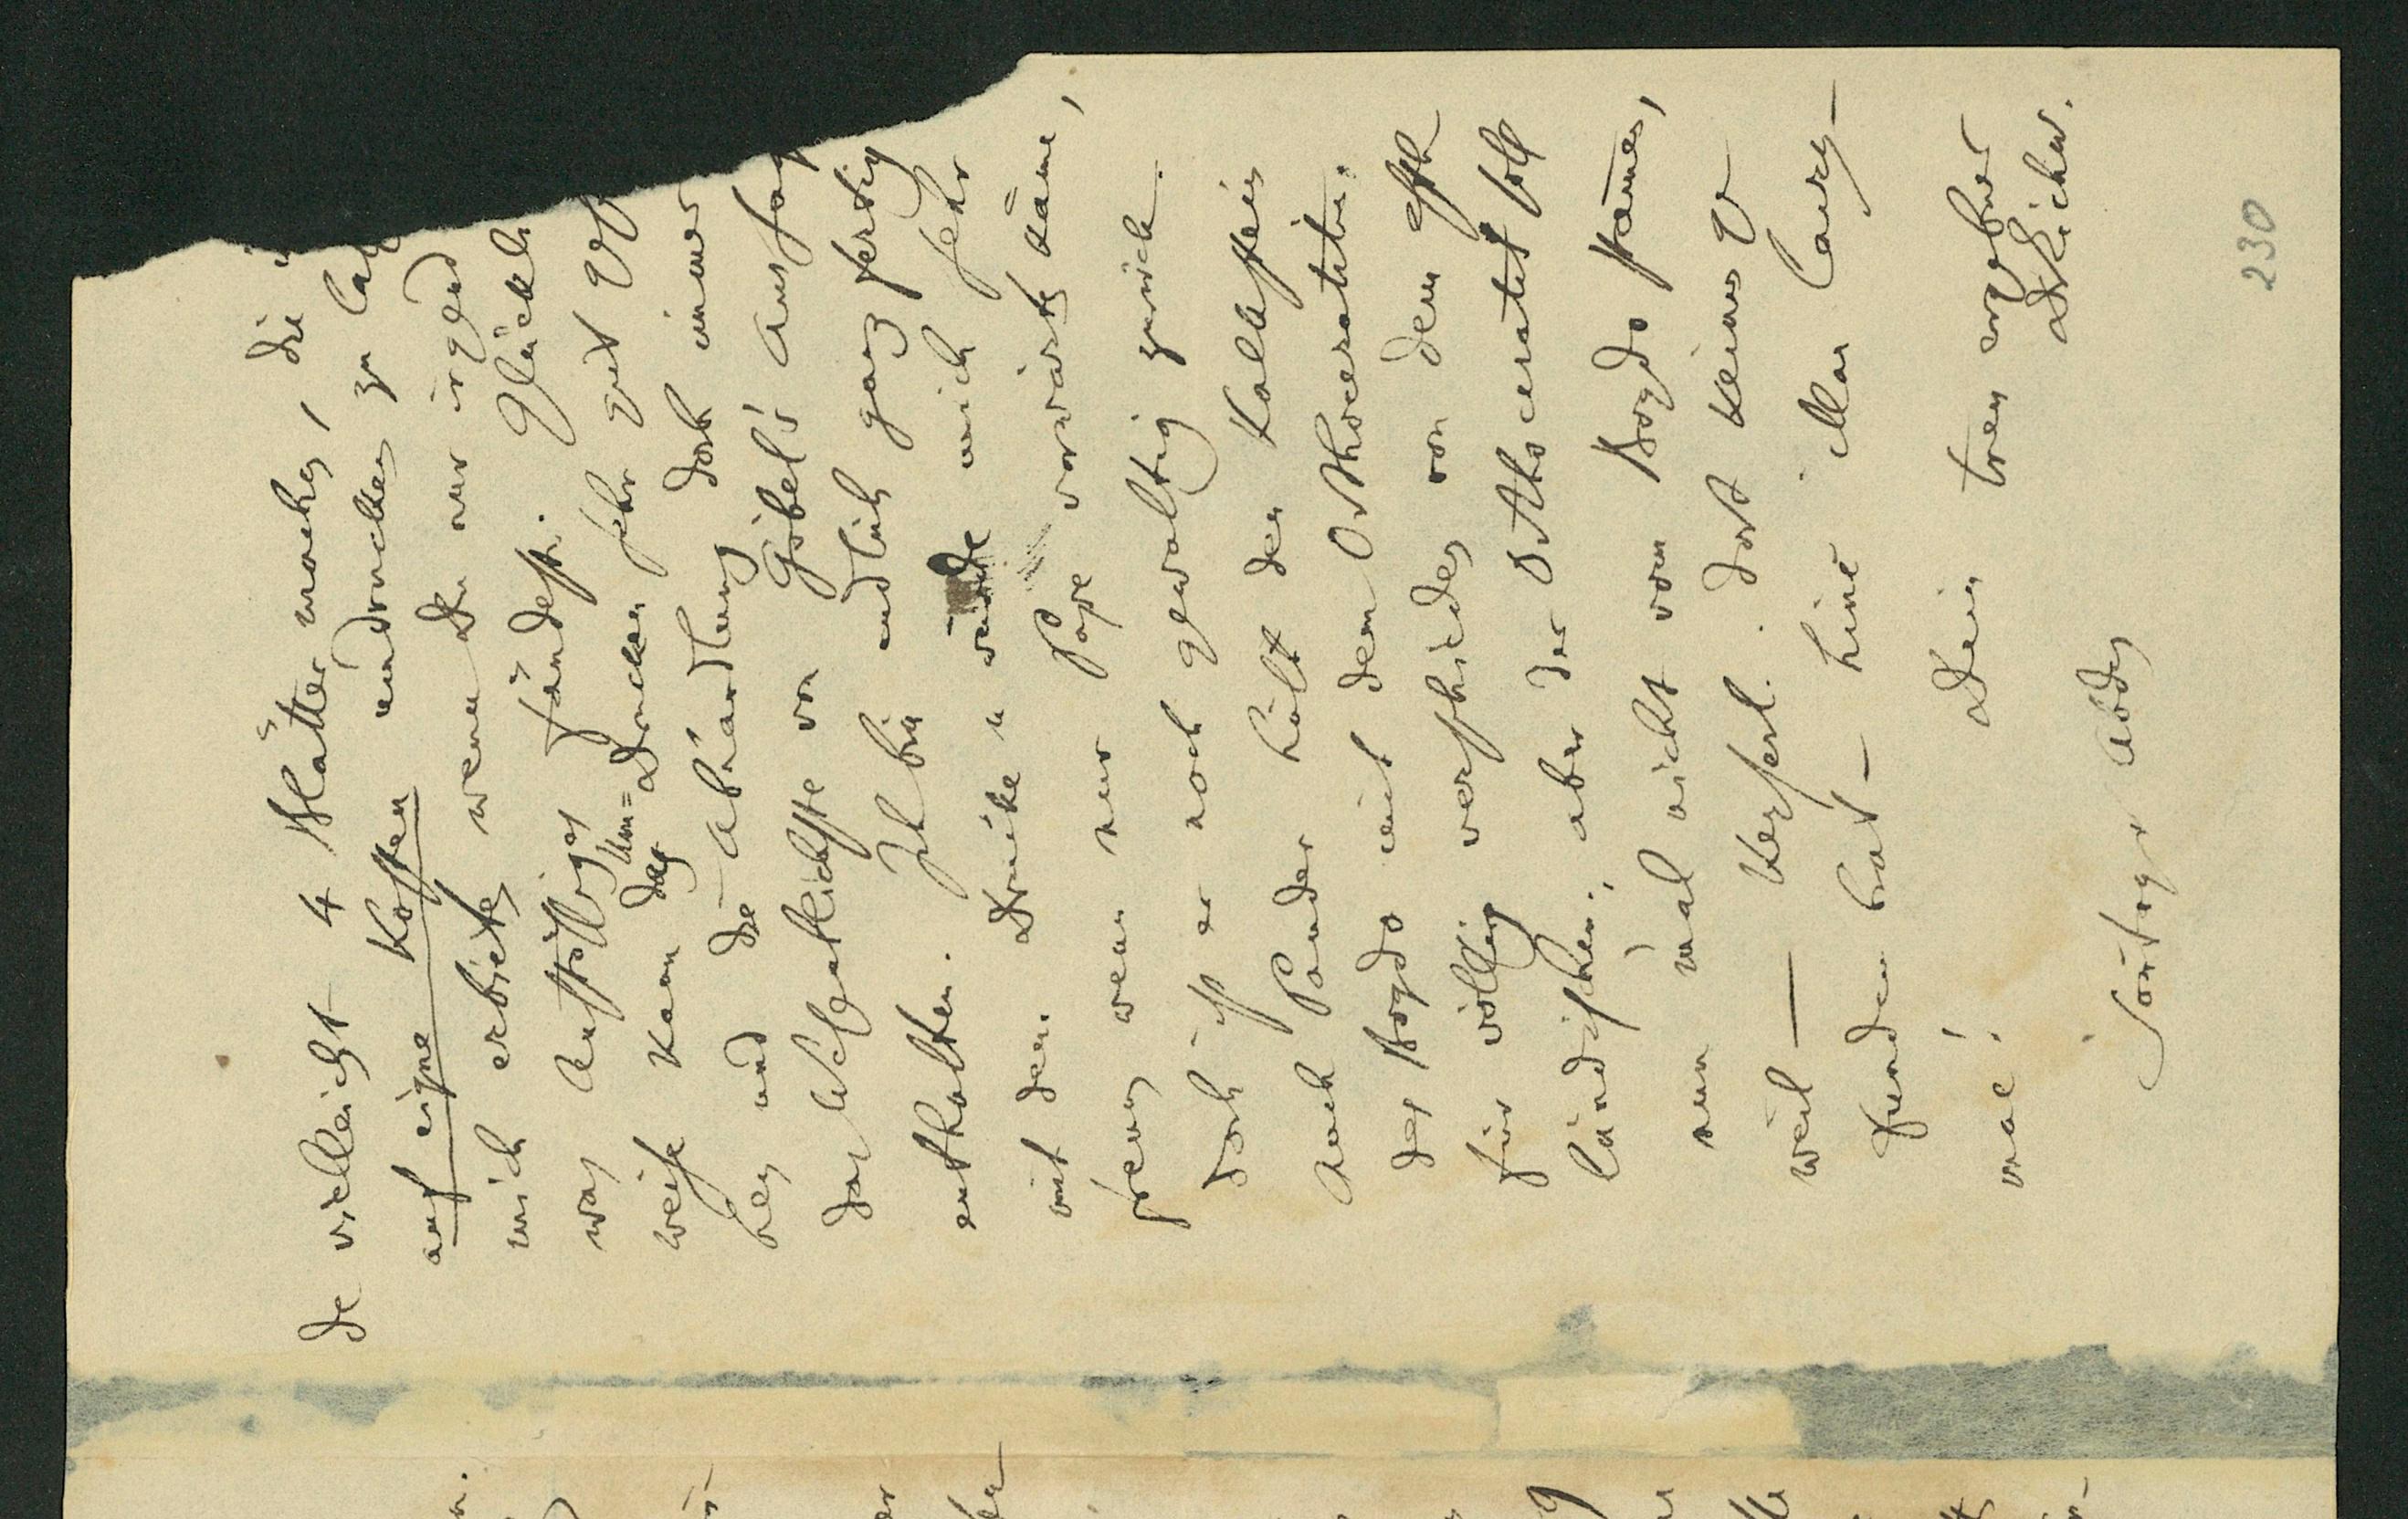 de vielleicht 4 Blätter machen, die i
auf eigne Kosten umdrucken zu laß
mich erbiete, wenn Du nur irgend
was Auffälliges fändest. Glückli
weise kann das Um=Drucken sehr gut
hen und die Abhandlung doch immer
das Wesentlichste von Göbel's
enthalten. Ich bin endlich ganz fertig
mit dem Drucke u würde mich sehr
freuen wenn nur Pape vorwärts käme,
doch ist er noch gewaltig zurück.
Auch Pander hält den Kalkstein
des Bogdo mit dem Orthoceratit.
für völlig verschieden von dem Esth
ländischen; aber der Orthoceratit soll
nun mal nicht vom Bogdo stammen,
weil — Verfasl. dort keinen
funden hat — hinc illae lacry-
mae!
Dein treu ergebner
Sontags Abds
230